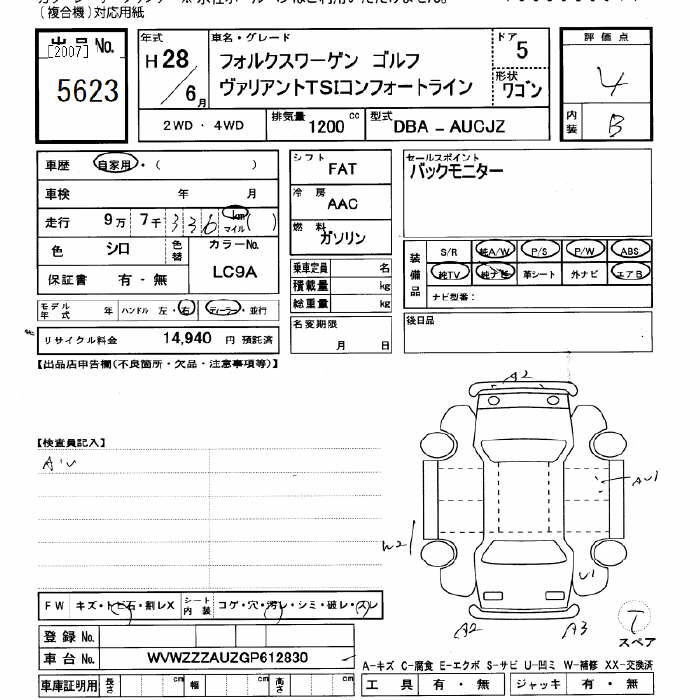 (複合機)対応用紙
出品 No.
[2007]
5623
年式
H 28
6 月
車名・グレード
フォルクスワーゲン ゴルフ
ヴァリアントTSIコンフォートライン
ドア
5
形状
ワゴン
評価点
4
内装
B
2WD ・ 4WD
排気量 1200 cc
型式 DBA - AUCJZ
車歴 自家用・( )
車検 年 月
走行 9万 7千 336 km マイル ( )
色 シロ
色替
カラーNo.
LC9A
保証書 有 - 無
モデル年式 年
ハンドル 左・右
ディーラー・並行
リサイクル料金 14,940 円 預託済
シフト
FAT
冷房
AAC
燃料
ガソリン
乗車定員 名
積載量 kg
総重量 kg
名変期限
月 日
セールスポイント
バックモニター
装備品
S/R 純A/W P/S P/W ABS
純TV 純ナビ 革シート 外ナビ エアB
ナビ型番:
後日品
【出品店申告欄(不良箇所・欠品・注意事項等)】
【検査員記入】
A・U
A2
AU1
W2
U1
A2
A3
スペア
FW キズ・トビ石・割レX
シート内装 コゲ・穴・汚レ・シミ・破レ・スレ
登録 No.
車台 No. WVWZZZAUZGP612830
車庫証明用 長さ cm 幅 cm 高さ cm
A-キズ C-腐食 E-エクボ S-サビ U-凹ミ W-補修 XX-交換済
工具 有 ・ 無 ジャッキ 有 ・ 無